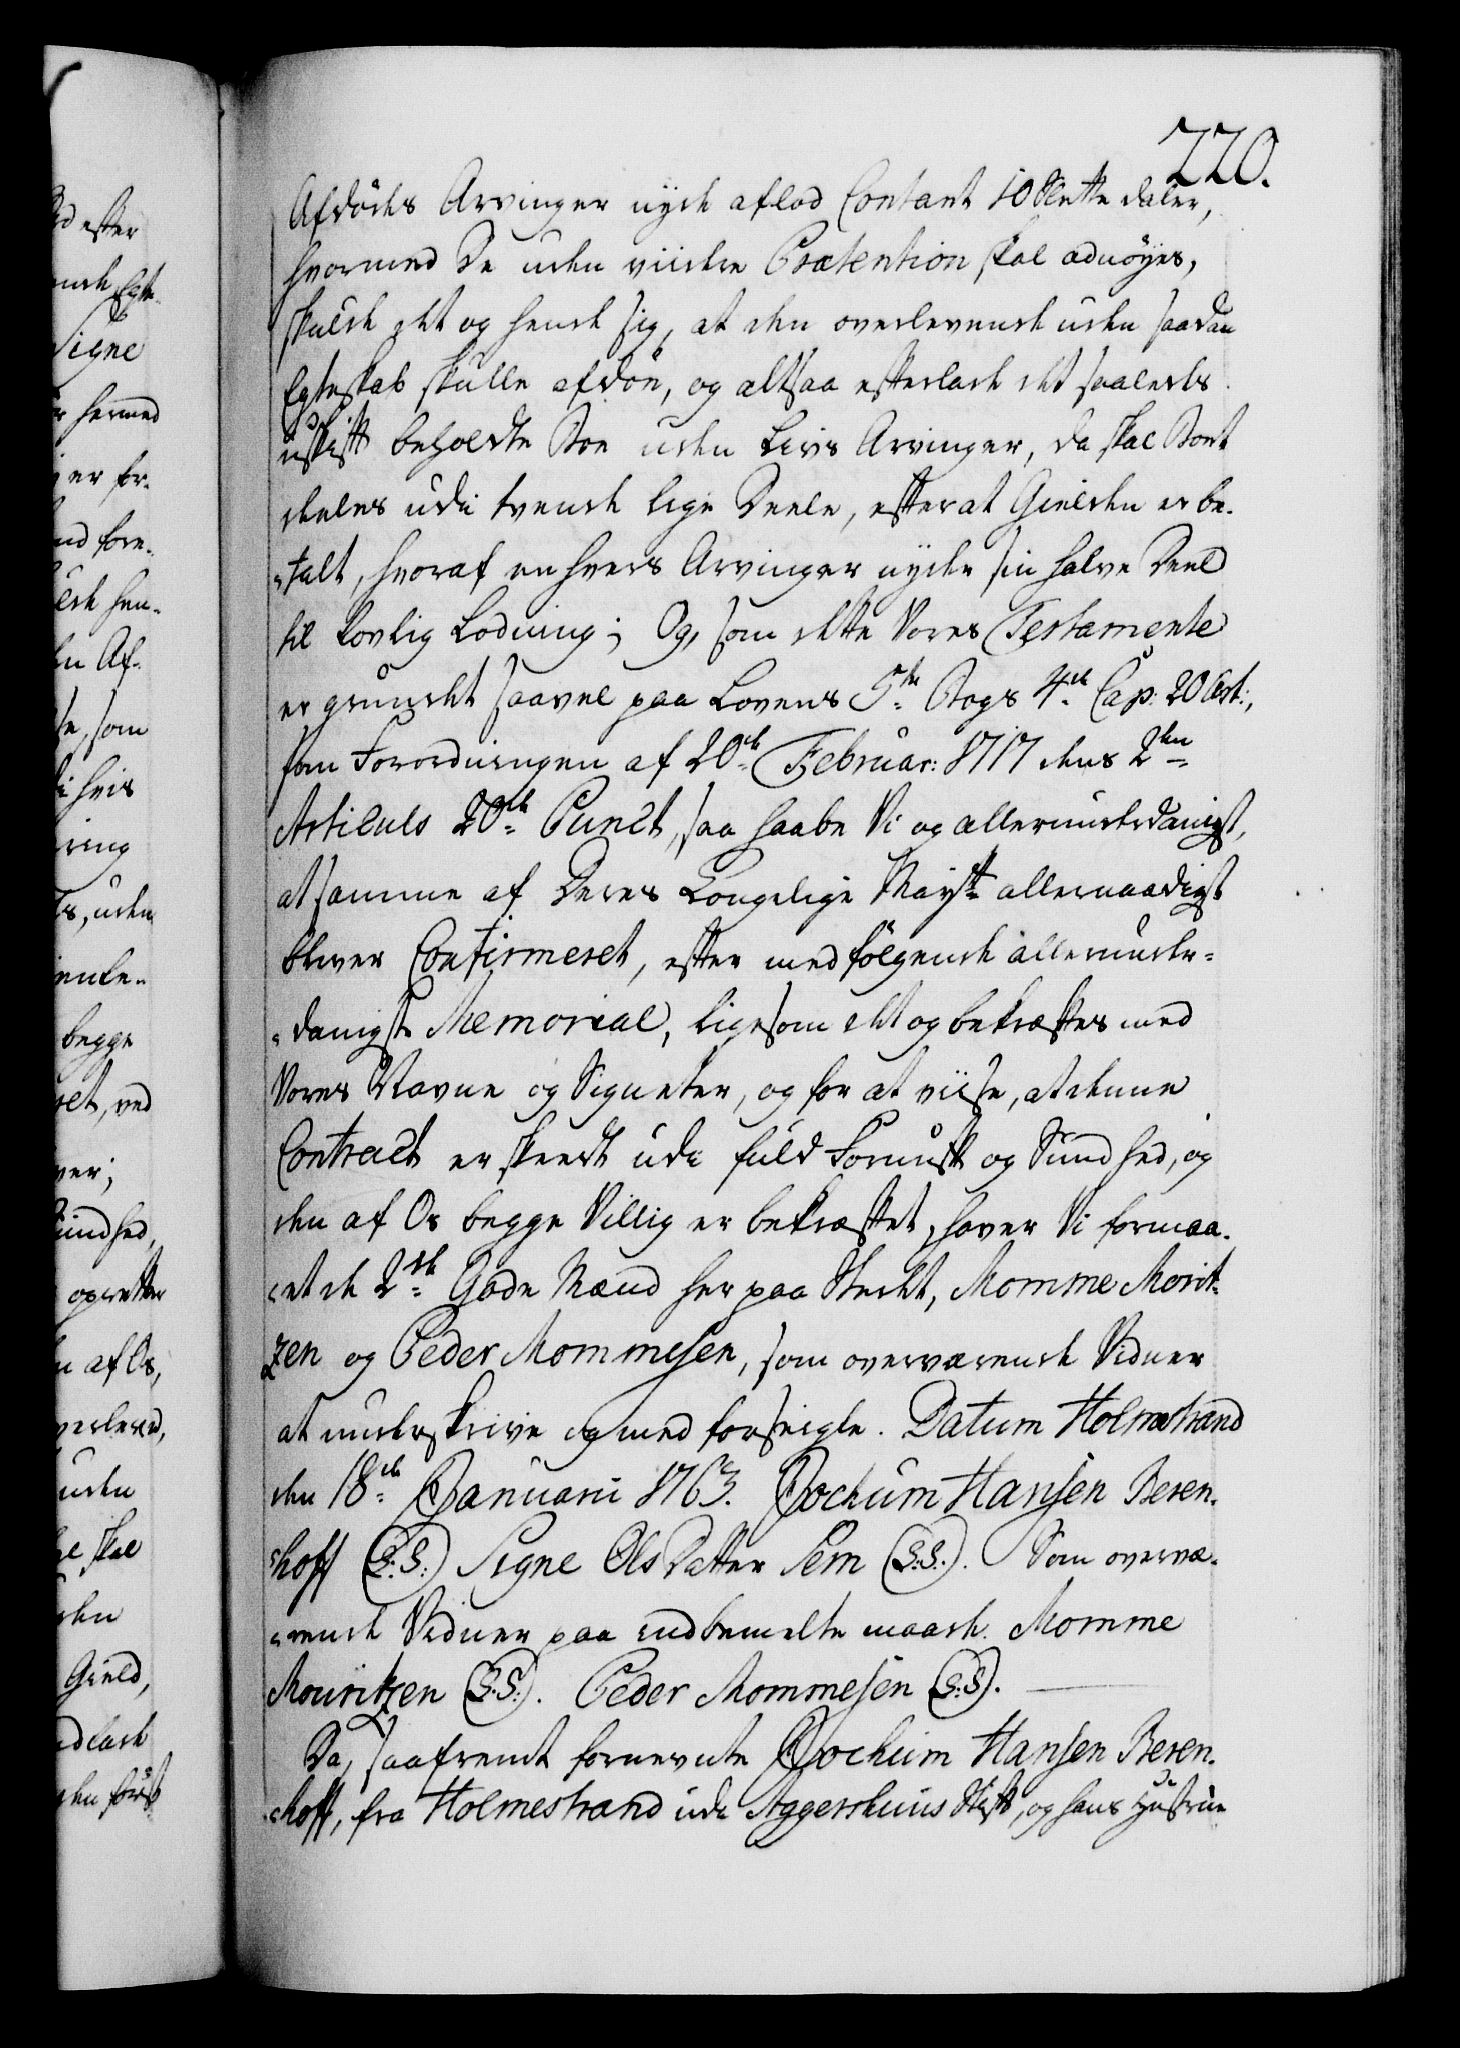 220.
Afdödes Arvinger nyde aflod Contant 10 Slette daler,
hvormed De uden viidere Prætention skal adnöyes,
skulde det og hende sig, at den overlevende uden saadan
Egteskab skulle afdöe, og altsaa efterlade det saaledes
uskift beholdte Boe uden Livs Arvinger, da skal Boet
deeles udi tvende lige Deele, efter at Gielden er be-
talt, hvoraf en hvers Arvinger nyde sin halve Deel
til Lovlig Lodning; Og, som dette Vores Testamente
er grundet saavel paa Lovens 5te Bogs 4de Cap: 20 Art:,
som Forordningen af 20de Februar: 1717 dens 2den
Articuls 20de Punct, saa haabe Vi og allerunderdanigst,
at samme af Deres Kongelige Mayst allernaadigst
bliver Confirmeret, efter medfölgende allerunder-
danigste Memorial, ligesom det og bekræftes med
Vores Navne og Signeter, og for at viise, at denne
Contract er skeedt udi fuld Fornuft og Sundhed, og
den af Os begge Villig er bekræftet, haver Vi formaa-
et de 2de Gode Mænd her paa Stedet, Momme Morit-
zen og Peder Mommesen, som overværende Vidner
at underskrive og med forseigle. Datum Holmestrand
den 18de Januarii 1763. Jochum Hansen Beren-
hoff (L.S.) Signe Ols Datter Sem (L.S.). Som overvæ-
rende Vidner paa endbemelte maade. Momme
Mouritzen (L.S.). Peder Mommesen (L.S.).
Da, saafremt fornevnte Jochum Hansen Beren-
hoff, fra Holmestrand udi Aggershuus Stift, og hans Hustrue